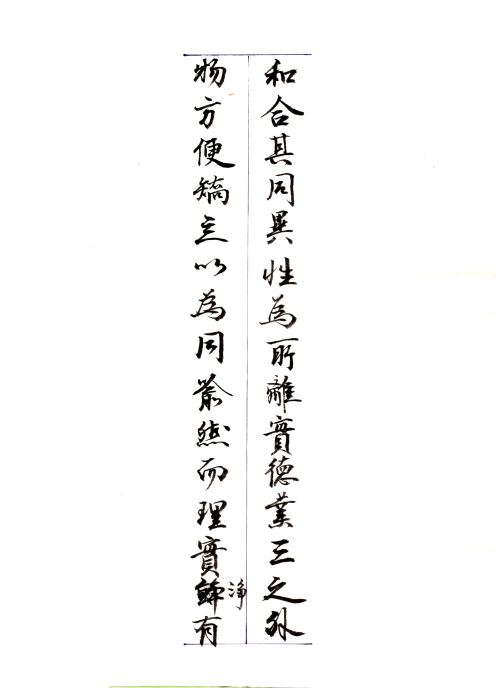 和合其同異性為所離實德業三之外
物方便矯立以為同喻然而理實有
净